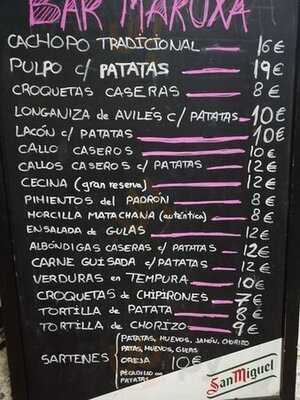 BAR MARUXA
CACHOPO TRADICIONAL 16€
PULPO c/ PATATAS 19€
CROQUETAS CASERAS 8€
LONGANIZA de AVILÉS c/ PATATAS 10€
LACÓN c/ PATATAS 10€
CALLO CASEROS 10€
CALLOS CASEROS c/ PATATAS 12€
CECINA (gran reserva) 12€
PIMIENTOS del PADRÓN 8€
MORCILLA MATACHANA (auténtica) 8€
ENSALADA de GULAS 12€
ALBÓNDIGAS CASERAS c/ PATATAS 12€
CARNE GUISADA c/ PATATAS 12€
VERDURAS en TEMPURA 10€
CROQUETAS de CHIPIRONES 7€
TORTILLA de PATATA 8€
TORTILLA de CHORIZO 9€
SARTENES
PATATAS, HUEVOS, JAMÓN, CHORIZO
PATAS, HUEVOS, GULAS
OREJA 10€
PATATAS
San Miguel